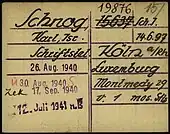 Schnog, 19876. 15/
15637 Sch.I.
Karl, Isr. 14.6.97
Schriftstel. Köln a/Rh.
26. Aug. 1940 Luxemburg
30. Aug. 1940 Montmedy 29
Zck 17. Sep. 1940 v. 1 mos.
12. Juli 1941